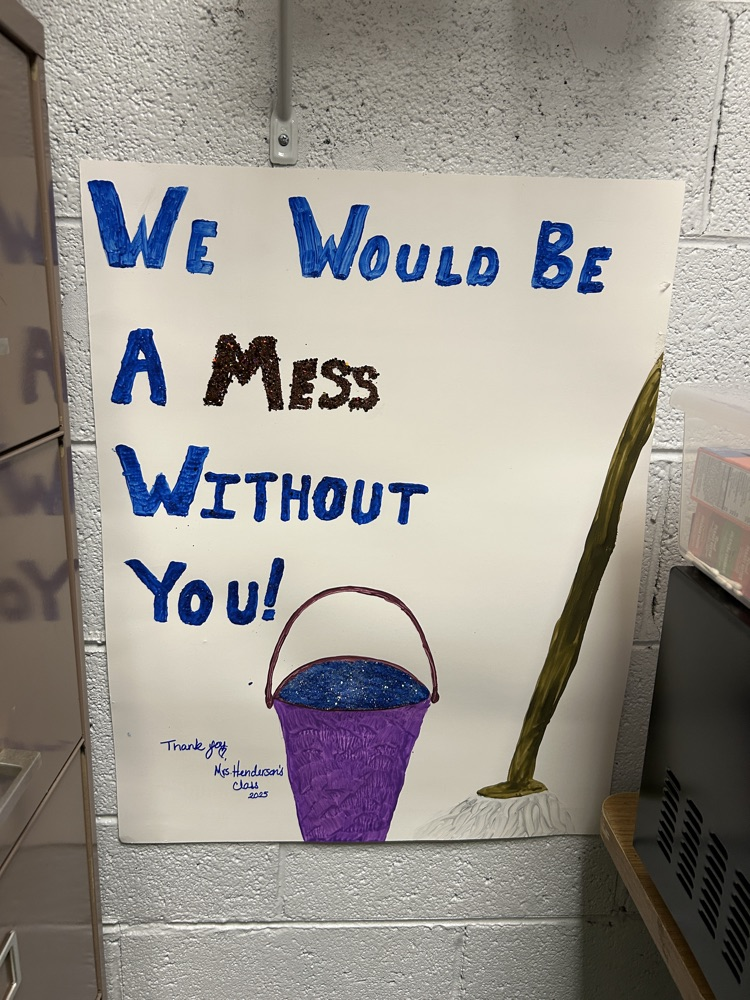 We Would Be
A Mess
Without
You!
Thank you
Mrs Henderson's
Class
2025